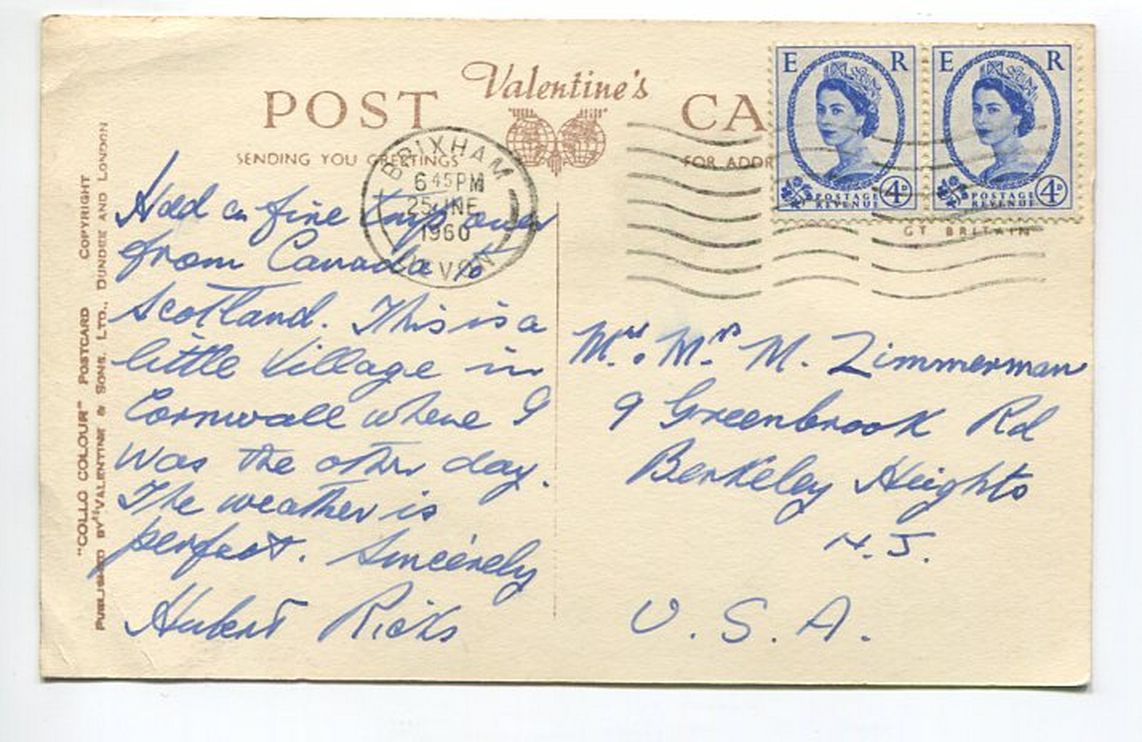 POST CA
Valentine's
SENDING YOU GREETINGS
FOR ADDR
BRIXHAM
6 45 PM
25 JNE
1960
DEVON
E R
POSTAGE
REVENUE
4D
E R
POSTAGE
REVENUE
4D
GT BRITAIN
"COLLO COLOUR" POSTCARD COPYRIGHT
PUBLISHED BY VALENTINE & SONS, LTD., DUNDEE AND LONDON
Had a fine trip over
from Canada to
Scotland. This is a
little Village in
Cornwall where I
was the other day.
The weather is
perfect. Sincerely
Hubert Ricks
Mr. Mrs M. Zimmerman
9 Greenbrook Rd
Berkeley Heights
N.J.
U.S.A.